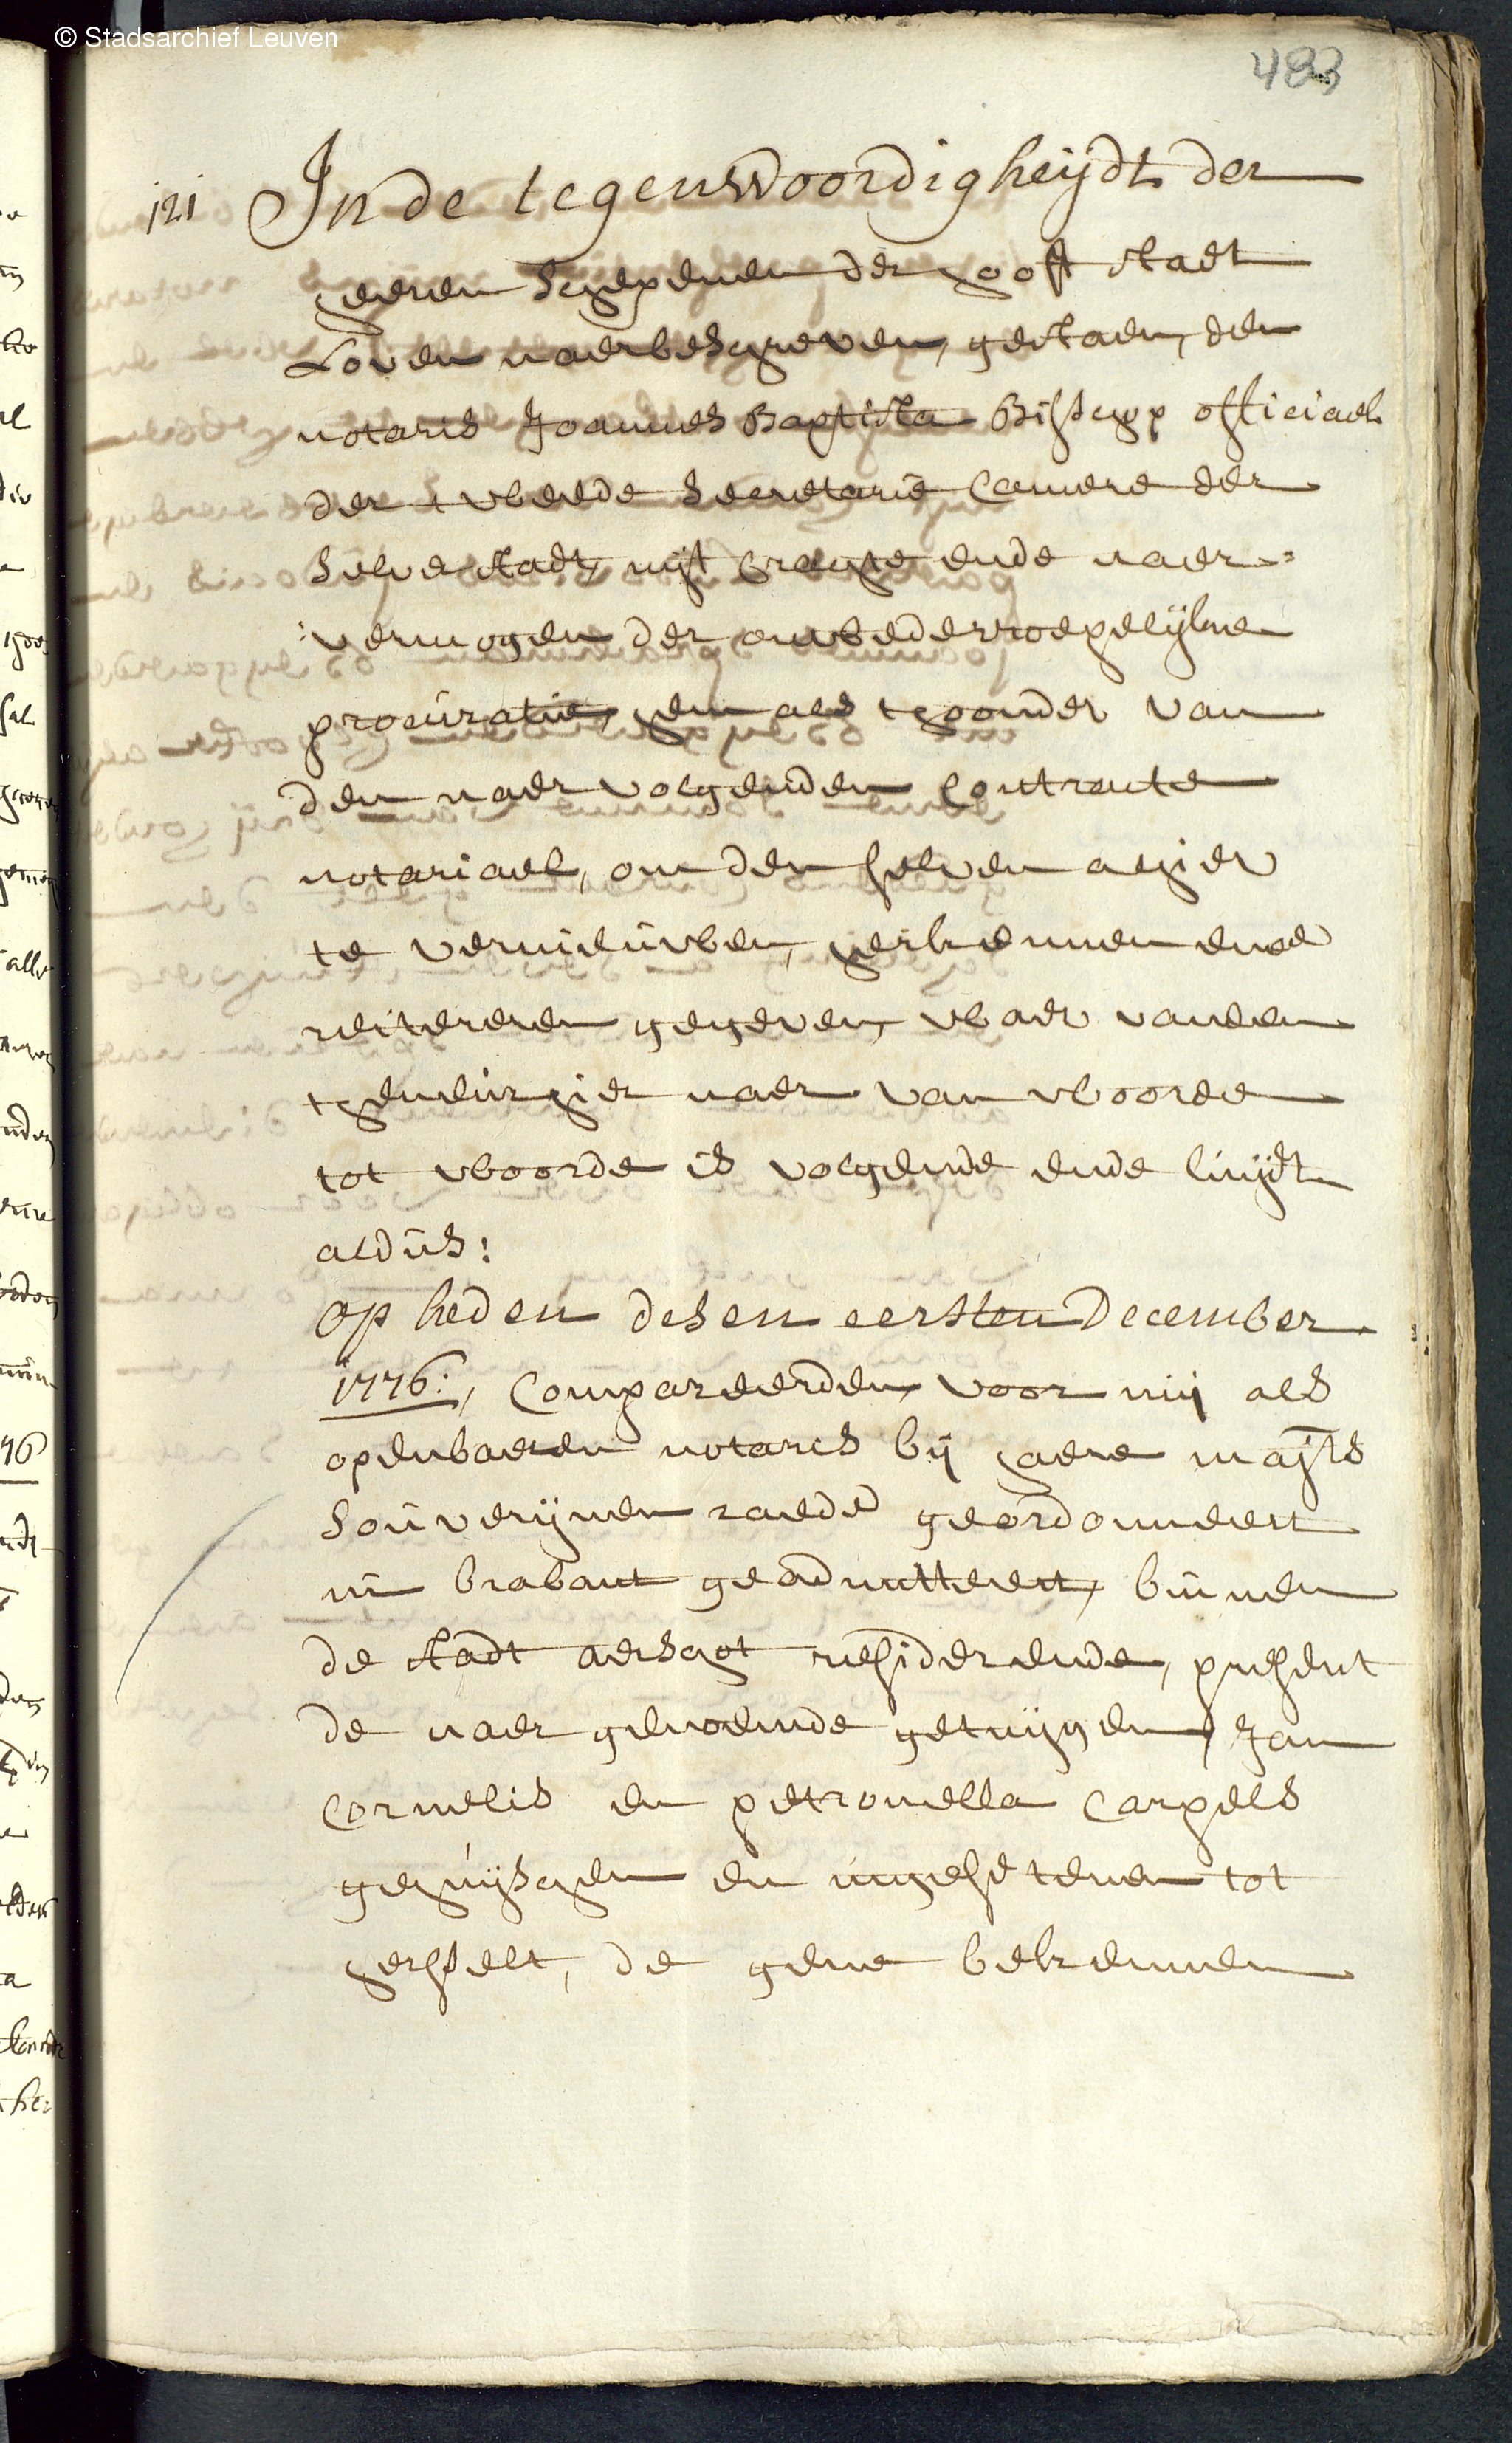 © Stadsarchief Leuven
483
121 In de tegenwoordigheijdt der
heeren schepenen der hooft stadt
Loven naerbeschreven, gestaen, den
notaris Joannes Baptista Bisschop officiael
der tweede secretarie camere der
selve stadt, uijt crachte ende naer=
:vermogen der onwederroepelijke
procuratie, hem als thoonder van
den naervolgenden contracte
notariael, om den selven alhier
te vernieuwen, herkennen ende
reitereren gegeven, waer van den
theneur hier naer van woorde
tot woorde is volgende ende luijdt
aldus:
Op heden desen eersten December
1776:, compareerden voor mij als
openbaeren notaris bij haere majts
souverijnen raede geordonneert
in brabant geadmitteert, binnen
de stadt aerschot residerende, present
de naer genoemde getuijgen, Jan
Cornelis en petronella Carpels
gehuijschen en ingesetenen tot
hersselt, de gene bekennen